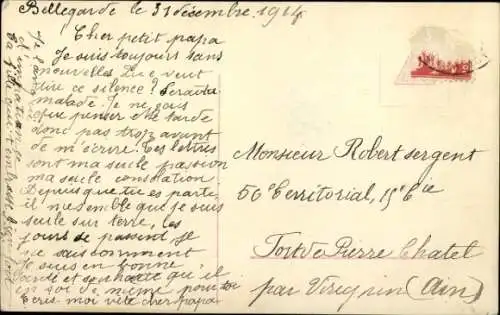 Bellegarde le 31 décembre 1914
Cher petit papa
Je suis toujours sans
nouvelles Que veut
dire ce silence? Serais tu
malade. Je ne sais
que penser Ne tarde
donc pas trop avant
de m'écrire. Tes lettres
sont ma seule passion
ma seule consolation
Depuis que tu es parti
il me semble que je suis
seule sur terre, les
jours se passent je
ne sais comment
Je suis en bonne
santé et souhaite qu'il
en soi de même pour toi
Écris moi vite cher papa
Monsieur Robert sergent
56e Territorial, 15e Cie
Fort de Pierre Chatel
par Virignin (Ain)